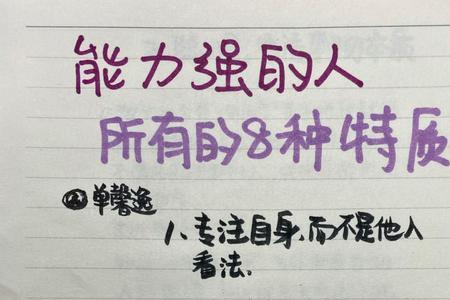 能力强的人
所有的8种特质
@单馨逸
1、专注自身,而不是他人
看法.